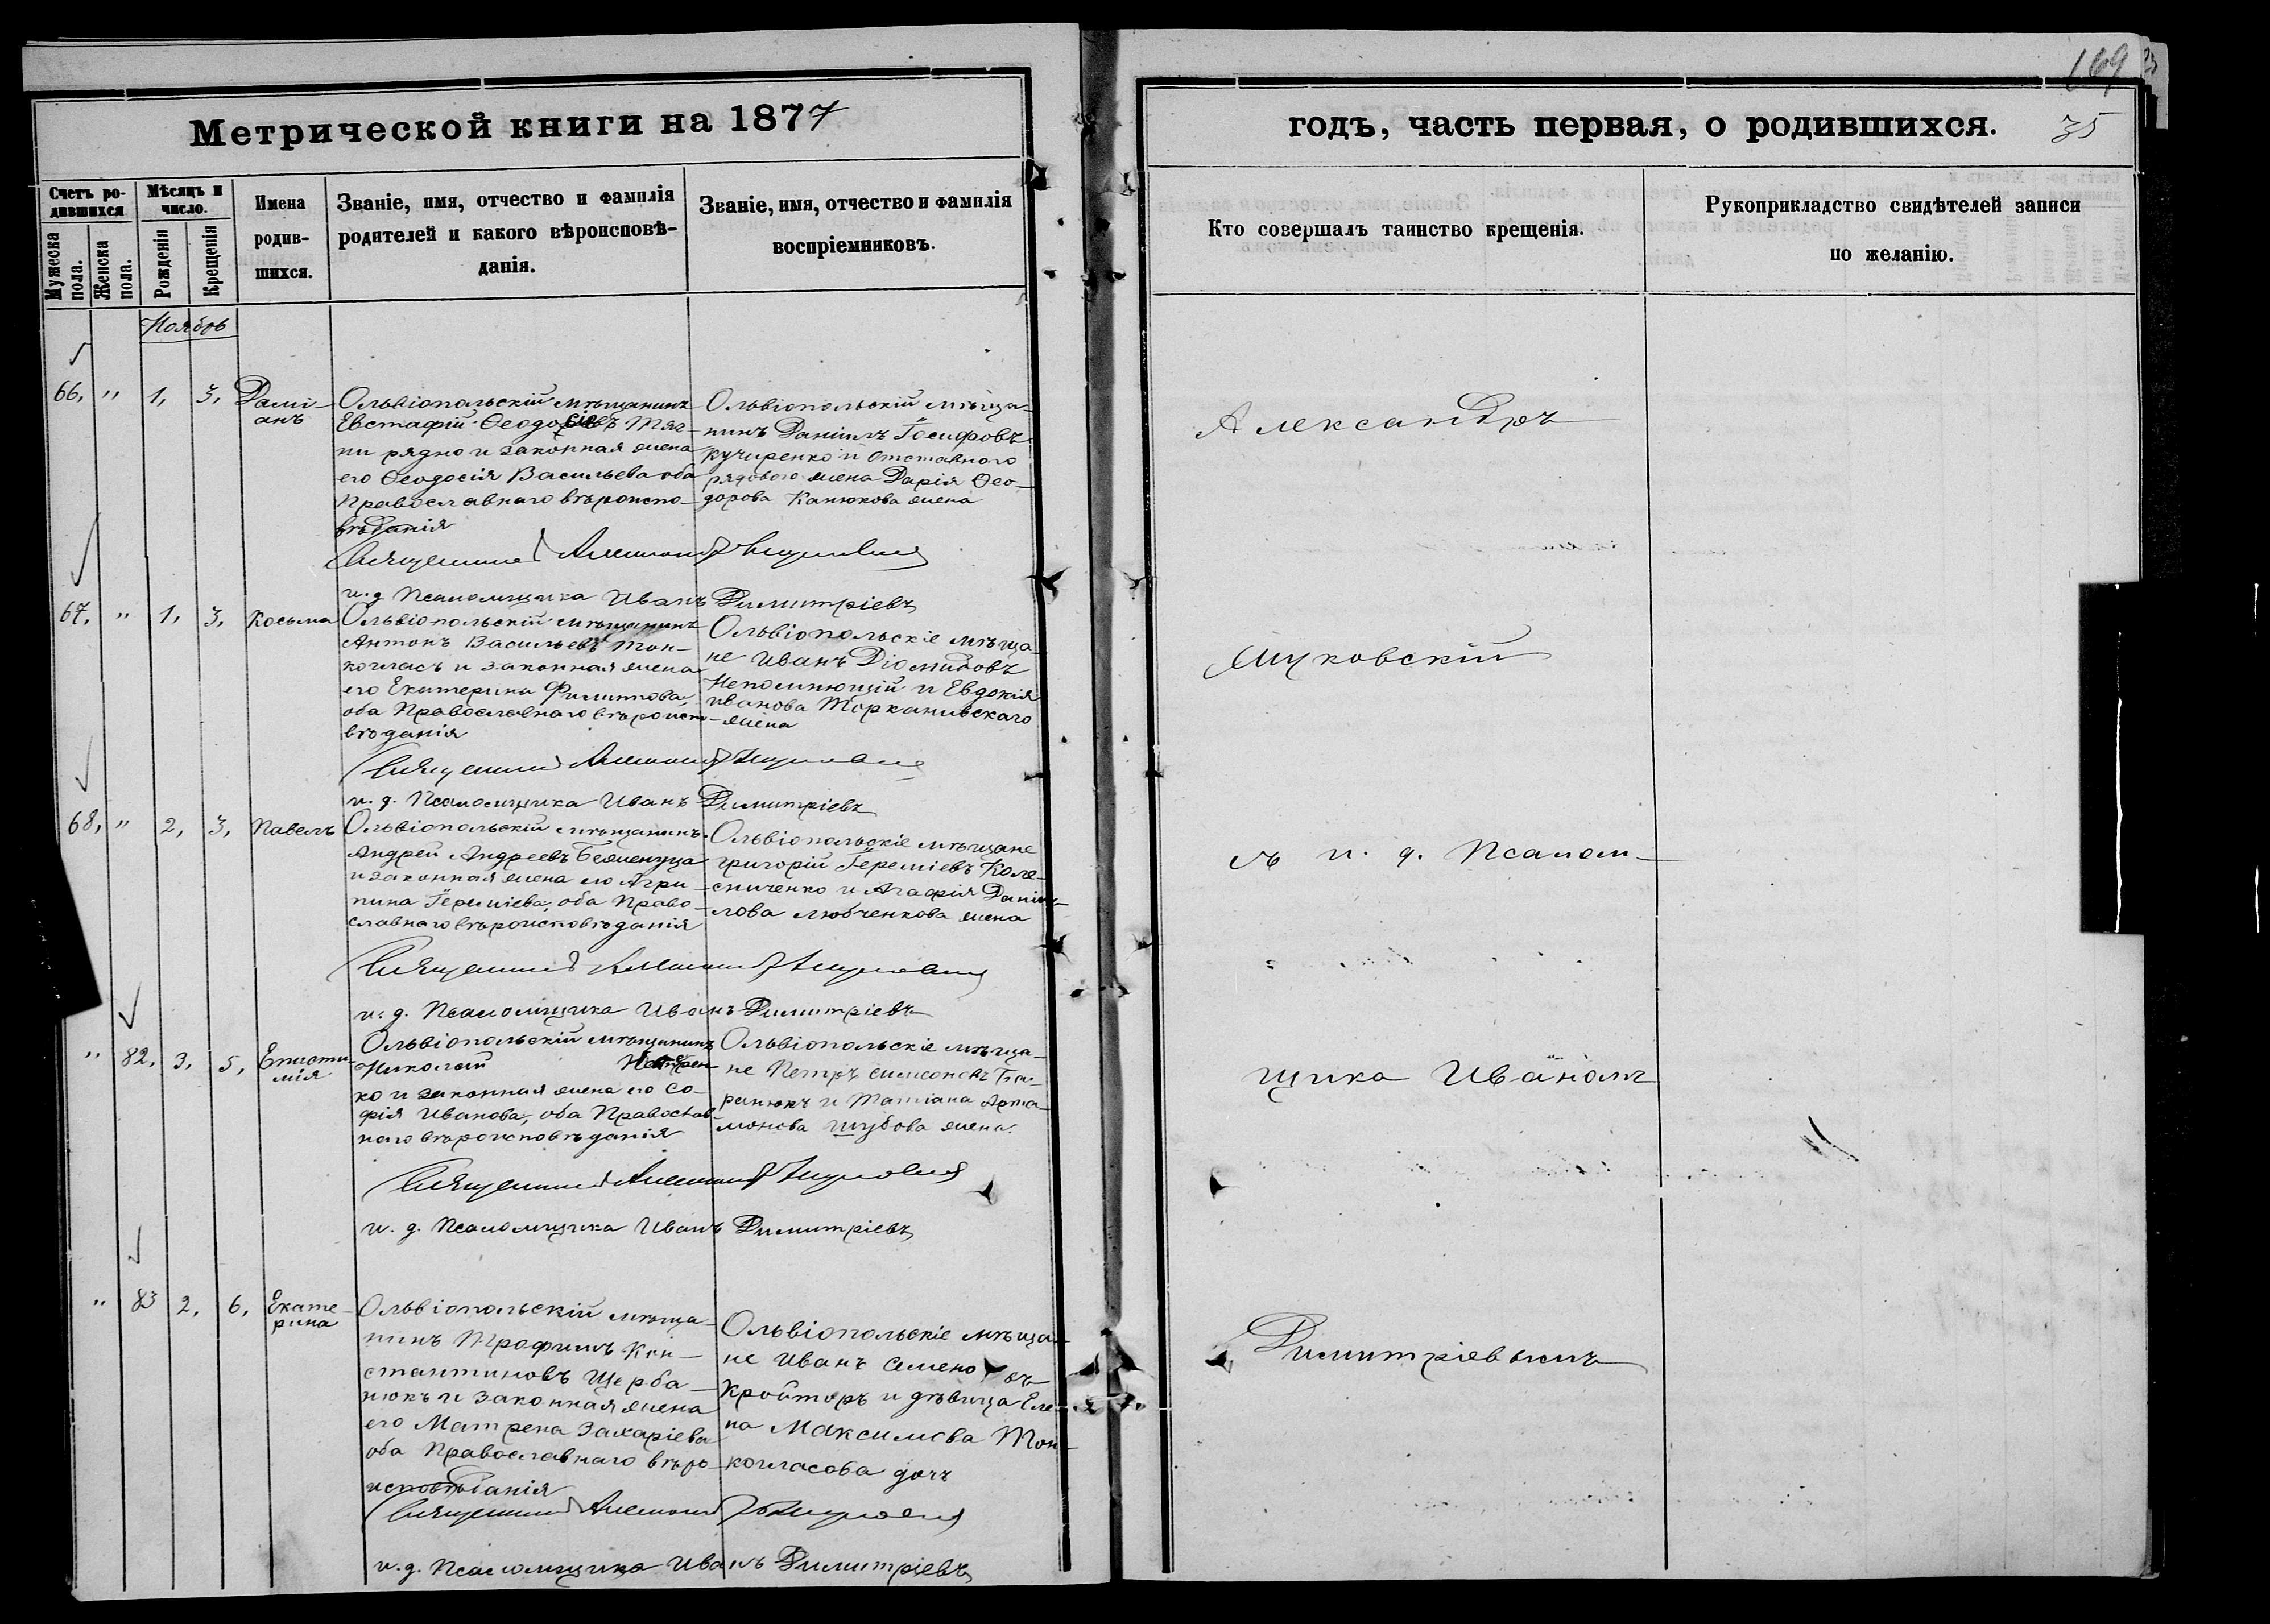 169
Метрической книги на 1877
годъ, часть первая, о родившихся.
35
Счетъ ро-
дившихся
Мужеска
пола.
Женска
пола.
Мѣсяцъ и
число.
Рожденія
Крещенія
Имена
родив-
шихся.
Званіе, имя, отчество и фамилія
родителей и какого вѣроисповѣ-
данія.
Званіе, имя, отчество и фамилія
воспріемниковъ.
Кто совершалъ таинство крещенія.
Рукоприкладство свидѣтелей записи
по желанію.
Ноябрь
66, " 1, 3,
Дамі-
анъ
Ольвіопольскій мѣщанинъ
Евстафій Ѳеодосіевъ Тяг-
ни рядно и законная жена
его Ѳеодосія Васильева оба
Православнаго вѣроиспо-
вѣданія
Ольвіопольскій мѣща-
нинъ Даніилъ Іосифовъ
Кучиренко и отставного
рядового жена Дарія Ѳео-
дорова Канюкова жена
Священникъ
и. д. Псаломщика Иванъ Димитріевъ
67, " 1, 3, Косьма
Ольвіопольскій мѣщанинъ
Антонъ Васильевъ Тон-
когласъ и законная жена
его Екатерина Филиппова,
оба Православнаго вѣроиспо-
вѣданія
Ольвіопольскіе мѣща-
не Иванъ Діомидовъ
Непомнющій и Евдокія
Иванова Торкановскаго
жена
Священникъ
и. д. Псаломщика Иванъ Димитріевъ
68, " 2, 3, Павелъ
Ольвіопольскій мѣщанинъ
Андрей Андреевъ Беженуца
и законная жена его Агри-
пина Іереміева, оба Право-
славнаго вѣроисповѣданія
Ольвіопольскіе мѣщане
Григорій Іереміевъ Коле-
сниченко и Агафія Даніи-
лова Любченкова жена
Священникъ
и. д. Псаломщика Иванъ Димитріевъ
" 82, 3, 5,
Еписти-
мія
Ольвіопольскій мѣщанинъ
Николай
ко и законная жена его Со-
фія Иванова, оба Православ-
наго вѣроисповѣданія
Ольвіопольскіе мѣща-
не Петръ Симеоновъ Га-
ранюкъ и Татіана Арта-
монова Шубова жена.
Священникъ
и. д. Псаломщика Иванъ Димитріевъ
" 83 2, 6,
Екате-
рина
Ольвіопольскій мѣща-
нинъ Трофимъ Кон-
стантиновъ Щерба-
нюкъ и законная жена
его Матрена Захаріева
оба Православнаго вѣро-
исповѣданія
Ольвіопольскіе мѣща-
не Иванъ Семеновъ
Кройторъ и дѣвица Еле-
на Максимова Тон-
когласова дочь
Священникъ
и. д. Псаломщика Иванъ Димитріевъ
Александръ
съ и. д. Псалом-
щика Иваномъ
Димитріевымъ